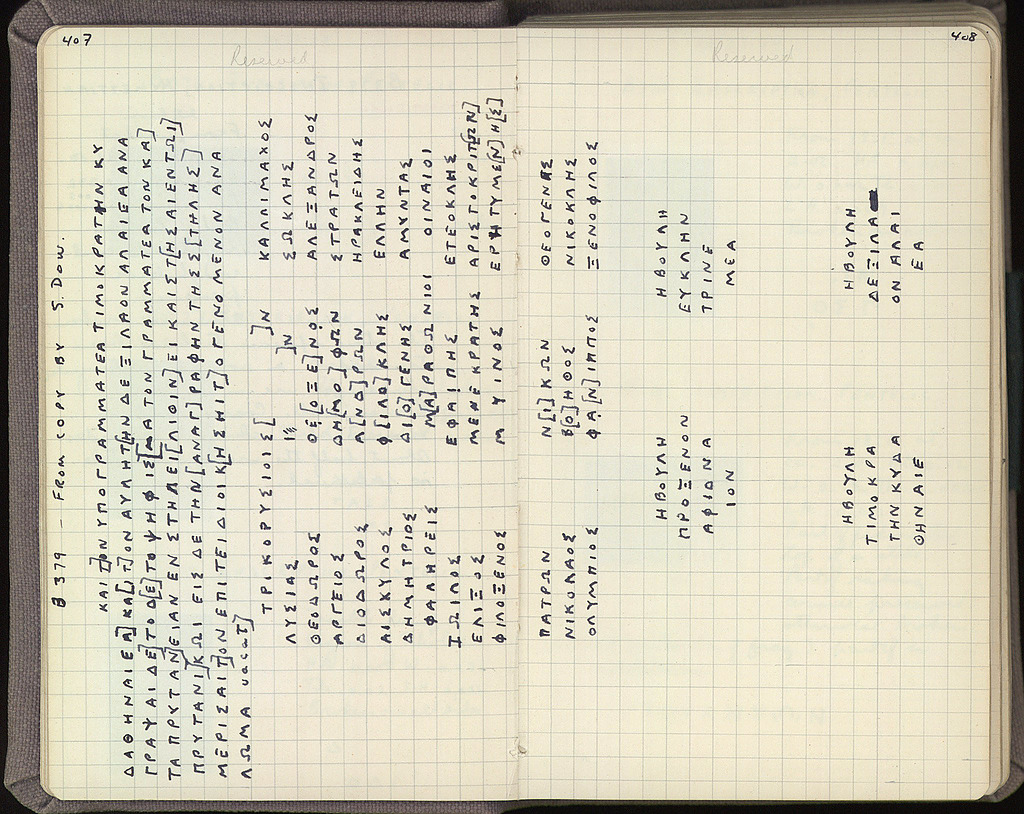 407
Reserved
B 379 — FROM COPY BY S. DOW.
ΚΑΙΤ]ΟΝΥΠΟΓΡΑΜΜΑΤΕΑΤΙΜΟΚΡΑΤΗΝΚΥ
ΔΑΘΗΝΑΙΕΑ]ΚΑ[ΙΤ]ΟΝΑΥΛΗΤ[ΗΝΔΕΞΙΛΑΟΝΑΛΑΙΕΑΑΝΑ
ΓΡΑΨΑΙΔΕ]ΤΟΔ[Ε]ΤΟΨΗΦΙΣ[ΜΑΤΟΝΓΡΑΜΜΑΤΕΑΤΟΝΚΑ]
ΤΑΠΡΥΤΑΝ]ΕΙΑΝΕΝΣΤΗΛΕΙ[ΛΙΘΙΝ]ΕΙΚΑΙΣΤ[ΗΣΑΙΕΝΤΩΙ]
ΠΡΥΤΑΝΙ]ΚΩΙΕΙΣΔΕΤΗΝ[ΑΝΑΓ]ΡΑΦΗΝΤΗΣΣ[ΤΗΛΗΣ]
ΜΕΡΙΣΑΙΤ]ΟΝΕΠΙΤΕΙΔΙΟΙΚ[ΗΣΗΙΤ]ΟΓΕΝΟΜΕΝΟΝΑΝΑ
ΛΩΜΑ vacat]
ΤΡΙΚΟΡΥΣΙΟΙΣ[ ]Ν ΚΑΛΛΙΜΑΧΟΣ
ΛΥΣΙΑΣ Ι ]Ν ΣΩΚΛΗΣ
ΘΕΟΔΩΡΟΣ ΘΕ[ΟΞΕ]ΝΟΣ ΑΛΕΞΑΝΔΡΟΣ
ΑΡΓΕΙΟΣ ΔΗ[ΜΟ]ΦΩΝ ΣΤΡΑΤΩΝ
ΔΙΟΔΩΡΟΣ Α[ΝΔ]ΡΩΝ ΗΡΑΚΛΕΙΔΗΣ
ΑΙΣΚΥΛΟΣ Φ[ΙΛΟ]ΚΛΗΣ ΕΛΛΗΝ
ΔΗΜΗΤΡΙΟΣ ΔΙ[Ο]ΓΕΝΗΣ ΑΜΥΝΤΑΣ
ΦΑΛΗΡΕΙΣ Μ[Α]ΡΑΘΩΝΙΟΙ ΟΙΝΑΙΟΙ
ΙΩΙΛΟΣ ΕΦΑΙΠΗΣ ΕΤΕΟΚΛΗΣ
ΕΛΙΞΟΣ ΜΕΝΕΚΡΑΤΗΣ ΑΡΙΣΤΟΚΡΙΤ[ΩΝ]
ΦΙΛΟΞΕΝΟΣ Μ ΥΙΝΟΣ ΕΡΗΤΥΜΕ[Ν]Η[Σ]
408
Reserved
ΠΑΤΡΩΝ Ν[Ι]ΚΩΝ ΘΕΟΓΕΝΗΣ
ΝΙΚΟΛΑΟΣ Β[Ο]ΗΘΟΣ ΝΙΚΟΚΛΗΣ
ΟΛΥΜΠΙΟΣ ΦΑ[Ν]ΙΠΠΟΣ ΞΕΝΟΦΙΛΟΣ
ΗΒΟΥΛΗ ΗΒΟΥΛΗ
ΠΡΟΞΕΝΟΝ ΕΥΚΛΗΝ
ΑΦΙΔΝΑ ΤΡΙΝΕ
ΙΟΝ ΜΕΑ
ΗΒΟΥΛΗ ΗΒΟΥΛΗ
ΤΙΜΟΚΡΑ ΔΕΞΙΛΑ
ΤΗΝΚΥΔΑ ΟΝΑΛΑΙ
ΘΗΝΑΙΕ ΕΑ